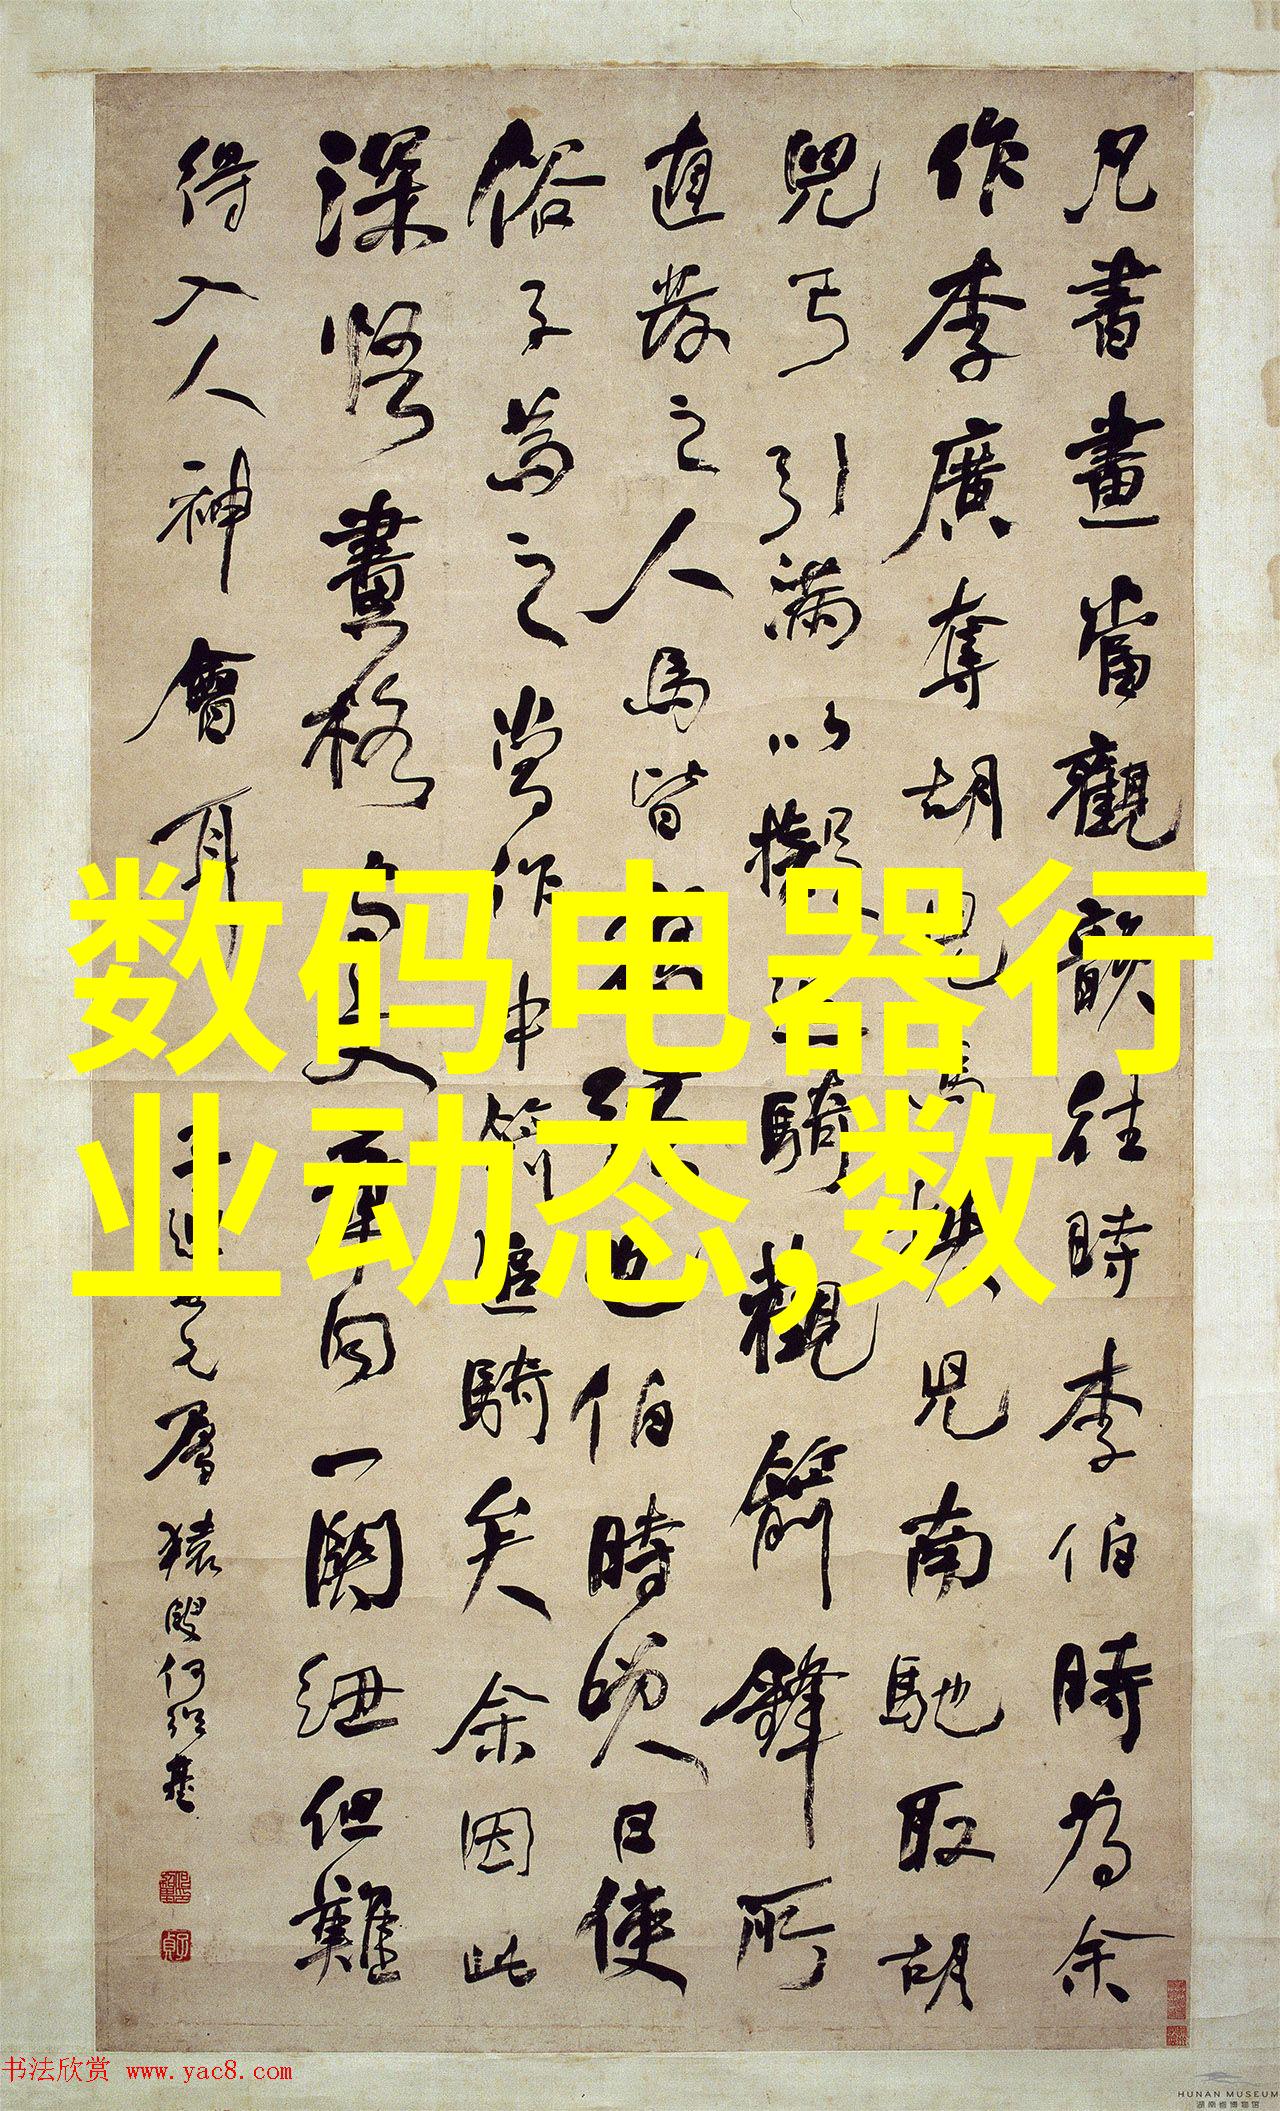 凡書畫當觀韻往時李伯時為余
作李廣奪胡兒馬挾兒南馳取胡
兒弓引滿以擬追騎觀箭鋒所
直發之人馬皆應弦也伯時笑曰使
俗子為之當作中箭追騎矣余因此
深悟畫格與文章同一關紐但難
得入人神會耳
屬 猿叟何紹基
数码电器行
业动态,数
书法欣赏 www.yac8.com
HUNAN MUSEUM
湖南省博物馆